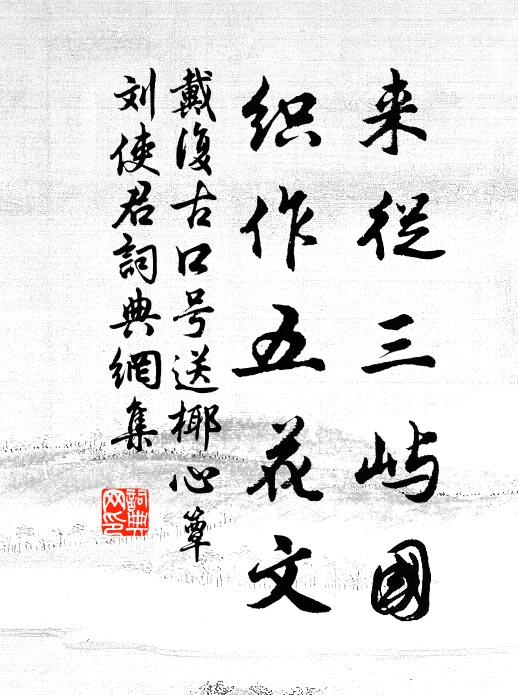 来従三屿國
织作五花文
戴復古口号送椰心簟
刘使君詞典網集
詞典网印